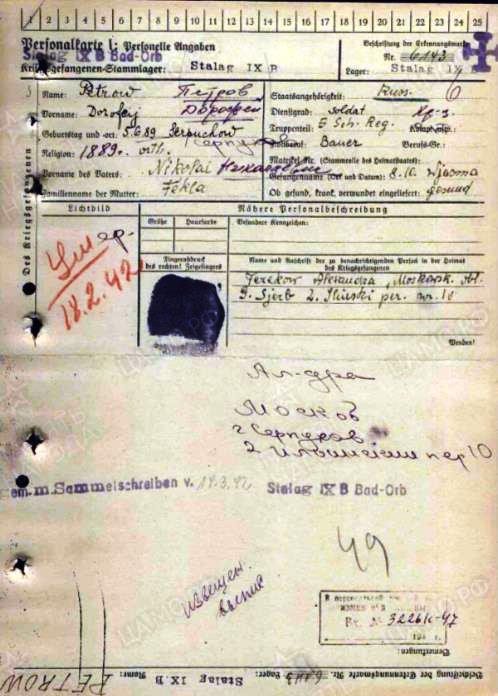 1 2 3 4 5 6 7 8 9 10 11 12 13 14 15 16 17 18 19 20 21 22 23 24 25
Personalkarte I: Personelle Angaben
Stalag IX B Bad-Orb
Kriegsgefangenen-Stammlager: Stalag IX B
Beschriftung der Erkennungsmarke
Nr. 6143
Lager: Stalag IX B
Des Kriegsgefangenen
Name: Petrow Петров
Vorname: Dorofej Дорофей
Geburtstag und -ort: 5.6.89 Serpuchow
Серпухов
Religion: 1889г. orth.
Vorname des Vaters: Nikolai Николаевич
Familienname der Mutter: Fekla
Staatsangehörigkeit: Russ.
Dienstgrad: Soldat Кр-ц
Truppenteil: 6 Sch. Reg. Kom.
Zivilberuf: Bauer Berufs-Gr.:
Matrikel Nr. (Stammrolle des Heimatstaates):
Gefangennahme (Ort und Datum): 8.10. Wjasma
Ob gesund, krank, verwundet eingeliefert: gesund
Lichtbild
Nähere Personalbeschreibung
Größe Haarfarbe Besondere Kennzeichen:
Умер.
18.2.42
Fingerabdruck
des rechten! Zeigefingers
Name und Anschrift der zu benachrichtigenden Person in der Heimat
des Kriegsgefangenen
Alexandra, Moskowsk.
2. per. nr. 10
Wenden!
Ал-дра
Москов
г Серпухов
2 пер 10
gem. m. Sammelschreiben v. 19.3.42 Stalag IX B Bad-Orb
49
извещен.
выпис
Вх. № 32261с-47
194 г.
Bemerkungen:
Beschriftung der Erkennungsmarke Nr. 6143 Lager: Stalag IX B Name: PETROW